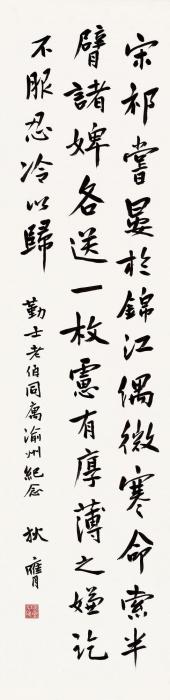 宋祁嘗晏於錦江偶微寒命索半
臂諸婢各送一枚慮有厚薄之嫌訖
不服忍冷以歸
勤士老伯同寓渝州紀念
狄膺